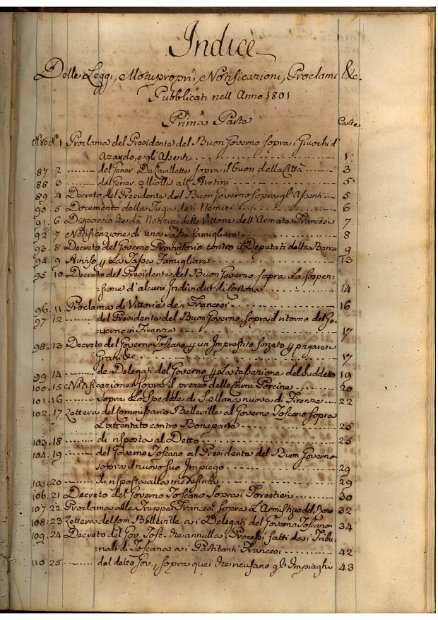 Indice
Delle Leggi, Motupropri, Notificazioni, Proclami &c.
Pubblicati nell Anno 1801
Prima Parte
Carte
N. 1 Proclama del Presidente del Buon Governo sopra i Giuochi d'
Azzardo, e gli Assenti 1
87 2 del sopra il buon della Città 3
88 3 del agli Aretini 5
89 4 Decreto del Presidente del Buon Governo sopra gli Assenti 5
90 5 sopra la fuga dei Nemici 6
91 6 Dispaccio della Vittoria dell'Armata Francese 7
92 7 Notificazione di una Tassa famigliare 8
93 8 Decreto del Governo Provvisorio contro i Deputati della 9
94 9 Avviso la Tassa Famigliare 13
95 10 Decreto del Presidente del Buon Governo sopra la sospen-
sione d'alcuni Individui di Cortona 14
96 11 Proclama di Vittorie de Francesi 16
97 12 del Presidente del Buon Governo, sopra il ritorno del Go-
verno in Firenze 17
98 13 Decreto del Governo Toscano p. un Imprestito forzato p. pagare i
17
99 14 de Delegati del Governo p. la del suddetto 19
100 15 Notificazione sopra il prezzo delle 20
101 16 sopra lo Spedale di S. nuova di Firenze 22
102 17 Lettera del Commissario Belleville al Governo Toscano sopra
L'attentato contro Bonaparte 25
103 18 di risposta al Detto 25
104 19 del Governo Toscano al Presidente del Buon Governo
sopra il nuovo suo Impiego 29
105 20 di risposta alla medesima 29
106 21 Decreto del Governo Toscano sopra i Forestieri 30
107 22 Proclama alle Truppe Francesi sopra L'Armistizio del 32
108 23 Lettera del Com. Belleville ai Delegati del Governo Toscano 34
109 24 Decreto del Gov. Tosc. che annulla i Processi fatti dai Tribu-
nali di Toscana ai Partitanti Francesi 42
110 25 del detto Gov. sopra quei che ricusano gl'Impieghi 43